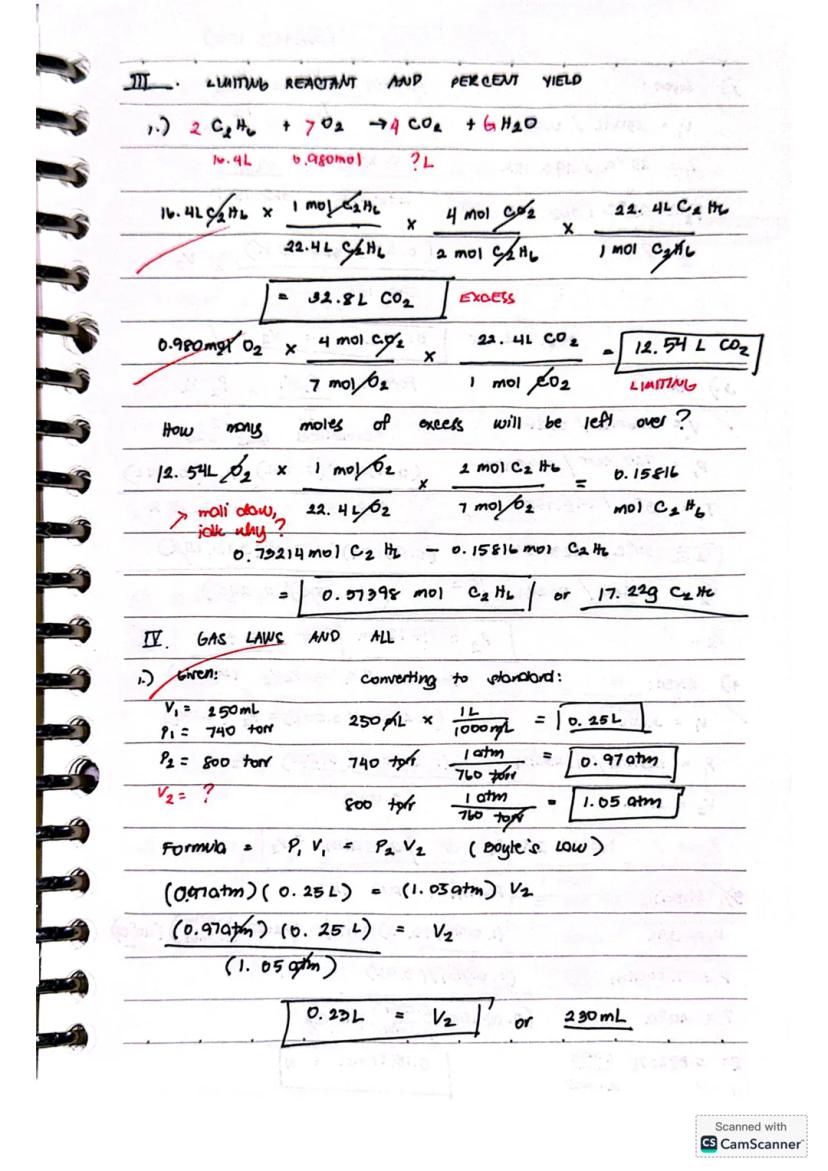 III. LIMITING REACTANT AND PERCENT YIELD
1.) 2 C2H6 + 7 O2 → 4 CO2 + 6 H2O
16.4L 0.980mol ?L
16.4L C2H6 x 1 mol C2H6 / 22.4L C2H6 x 4 mol CO2 / 2 mol C2H6 x 22.4L C2H6 / 1 mol C2H6
= 32.8L CO2 EXCESS
0.980mol O2 x 4 mol CO2 / 7 mol O2 x 22.4L CO2 / 1 mol CO2 = 12.54 L CO2
LIMITING
How many moles of excess will be left over?
12.54L O2 x 1 mol O2 / 22.4L O2 x 2 mol C2H6 / 7 mol O2 = 0.15816 mol C2H6
> mali daw, jolk why?
0.73214 mol C2H6 - 0.15816 mol C2H6
= 0.57398 mol C2H6 or 17.22g C2H6
IV. GAS LAWS AND ALL
1.) Given: converting to standard:
V1 = 250mL 250 mL x 1L / 1000mL = 0.25L
P1 = 740 torr
P2 = 800 torr 740 torr 1 atm / 760 torr = 0.97atm
V2 = ? 800 torr 1 atm / 760 torr = 1.05 atm
Formula = P1 V1 = P2 V2 (Boyle's Law)
(0.97atm)(0.25L) = (1.05atm) V2
(0.97atm)(0.25 L) / (1.05 atm) = V2
0.23L = V2 or 230mL
Scanned with
CS CamScanner